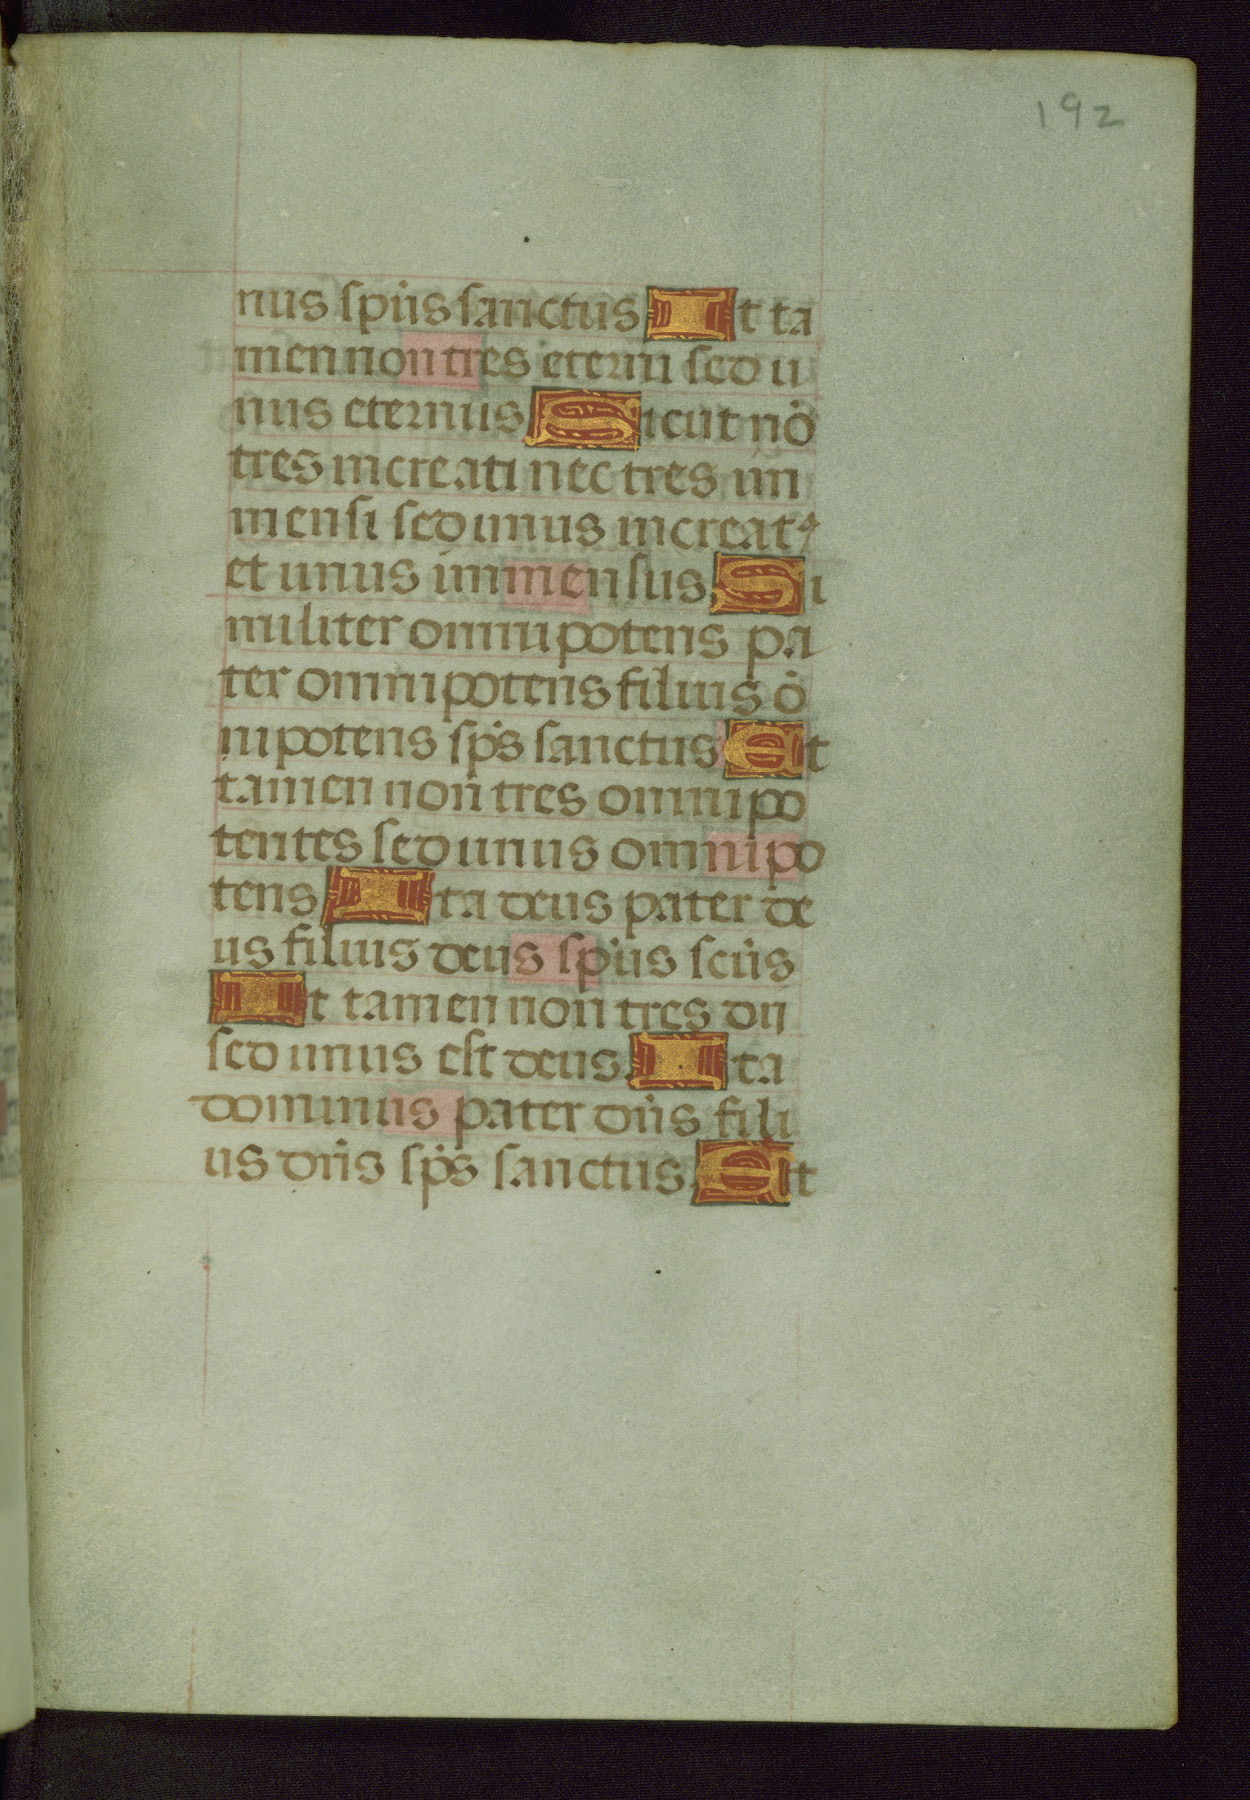 192
nus spūs sanctus It ta
men non tres eterni sed u
nus eternus Sicut nō
tres increati nec tres im
mensi sed unus increatꝰ
et unus immensus. Si
militer omnipotens pa
ter omnipotens filius ō
nipotens sp̄s sanctus Et
tamen non tres omnipo
tentes sed unus omnipo
tens Ita deus pater de
us filius deus spūs scūs
It tamen non tres dii
sed unus est deus. Ita
dominus pater dn̄s fili
us dn̄s sp̄s sanctus. Et